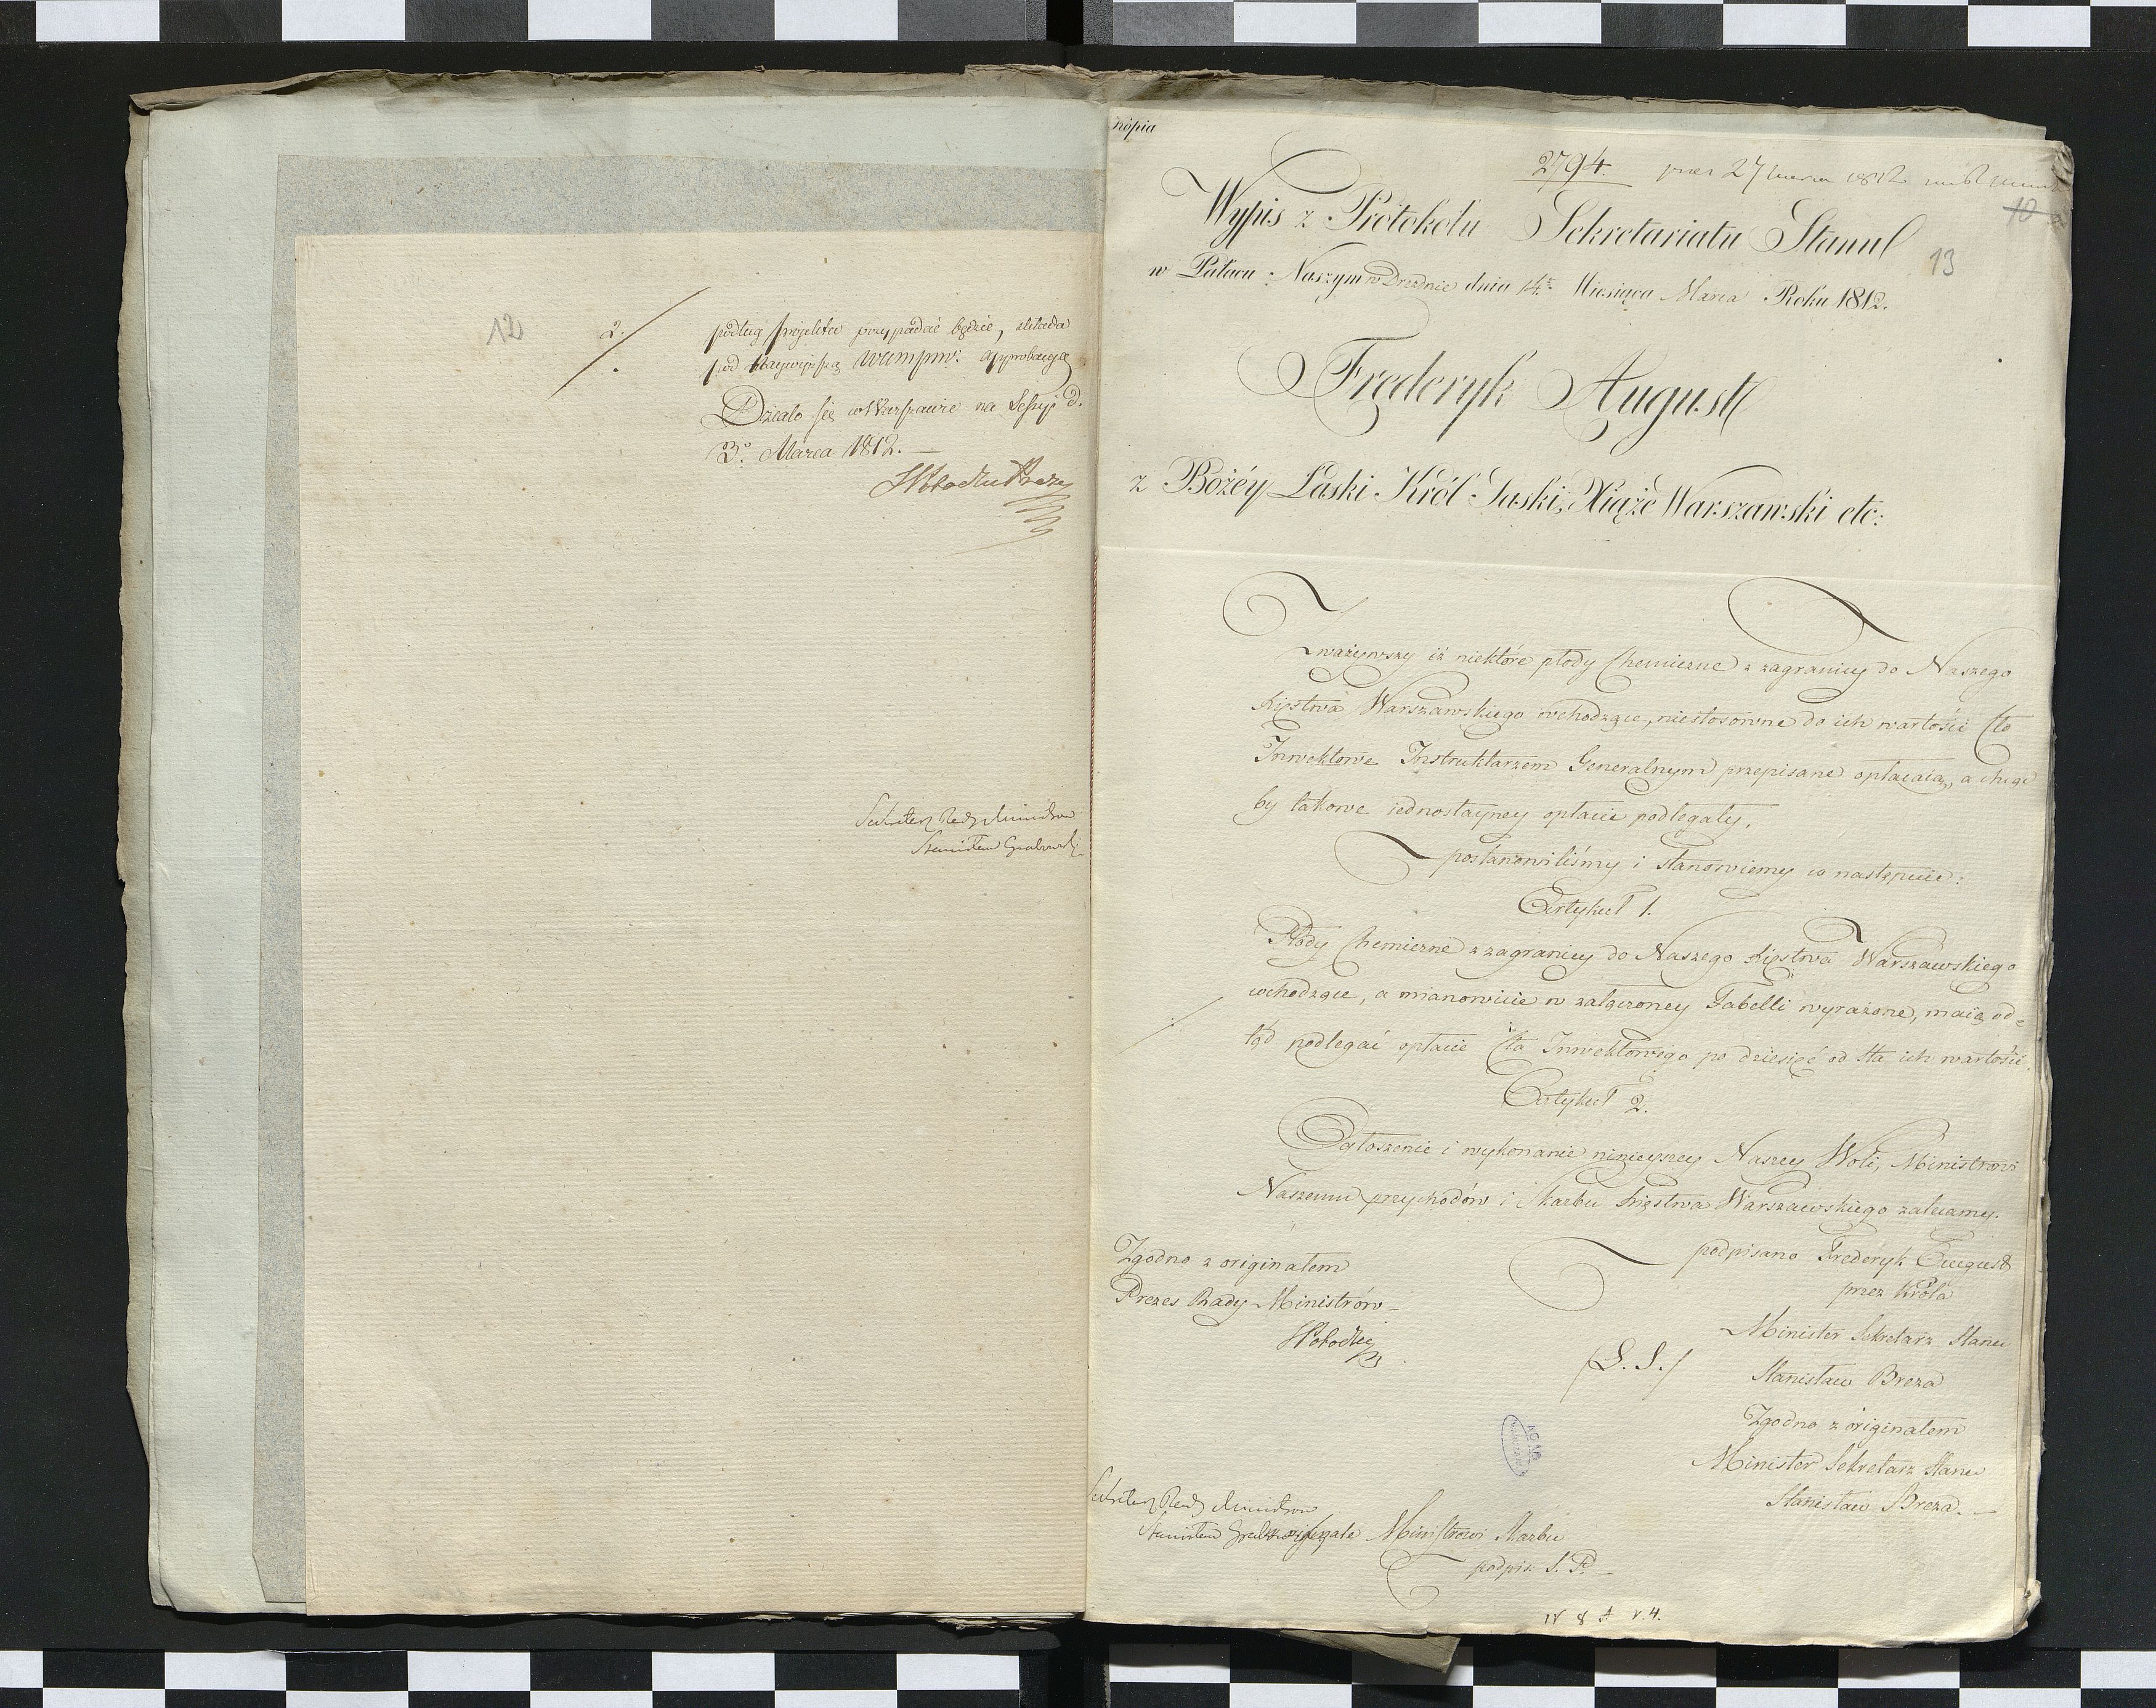 12
2.
podług projektu przypadać będzie, składa
pod Naywyższą WKMPM: approbacyą
Działo się w Warszawie na Sessyi d.
3º Marca 1812. —
Sekretarz Rady Ministrów
Stanisław Grabowski
Kopia
2794. 27 1812.
10
Wypis z Protokołu Sekretariatu Stanu
13
w Pałacu Naszym w Dreznie dnia 14. Miesiąca Marca Roku 1812.
Frederyk August
z Bożéy Łaski Król Saski, Xiąże Warszawski etc:
Zważywszy iż niektóre płody Chemiczne z zagranicy do Naszego
Xięstwa Warszawskiego wchodzące, niestosowne do ich wartości Cło
Inwektowe Instruktarzem Generalnym przepisane opłacaią, a chcąc
by takowe iednostayney opłacie podlegały,
postanowiliśmy i stanowiemy co następuie:
Artykuł 1.
Płody Chemiczne z zagranicy do Naszego Xięstwa Warszawskiego
wchodzące, a mianowicie w załączoney Tabelli wyrażone, maią od=
tąd podlegać opłacie Cła Inwektowego po dziesięć od sta ich wartości.
Artykuł 2.
Ogłoszenie i wykonanie ninieyszey Naszey Woli, Ministrowi
Naszemu przychodów i Skarbu Xięstwa Warszawskiego zalecamy.
podpisano Frederyk August
przez Króla
Minister Sekretarz Stanu
Stanisław Breza
(L. S.)
Zgodno z originałem
Minister Sekretarz Stanu
Stanisław Breza. —
Zgodno z originałem
Prezes Rady Ministrów —
Sekretarz Rady Ministrów
Stanisław Grabowski
Ministrowi Skarbu
podpis: S. P. —